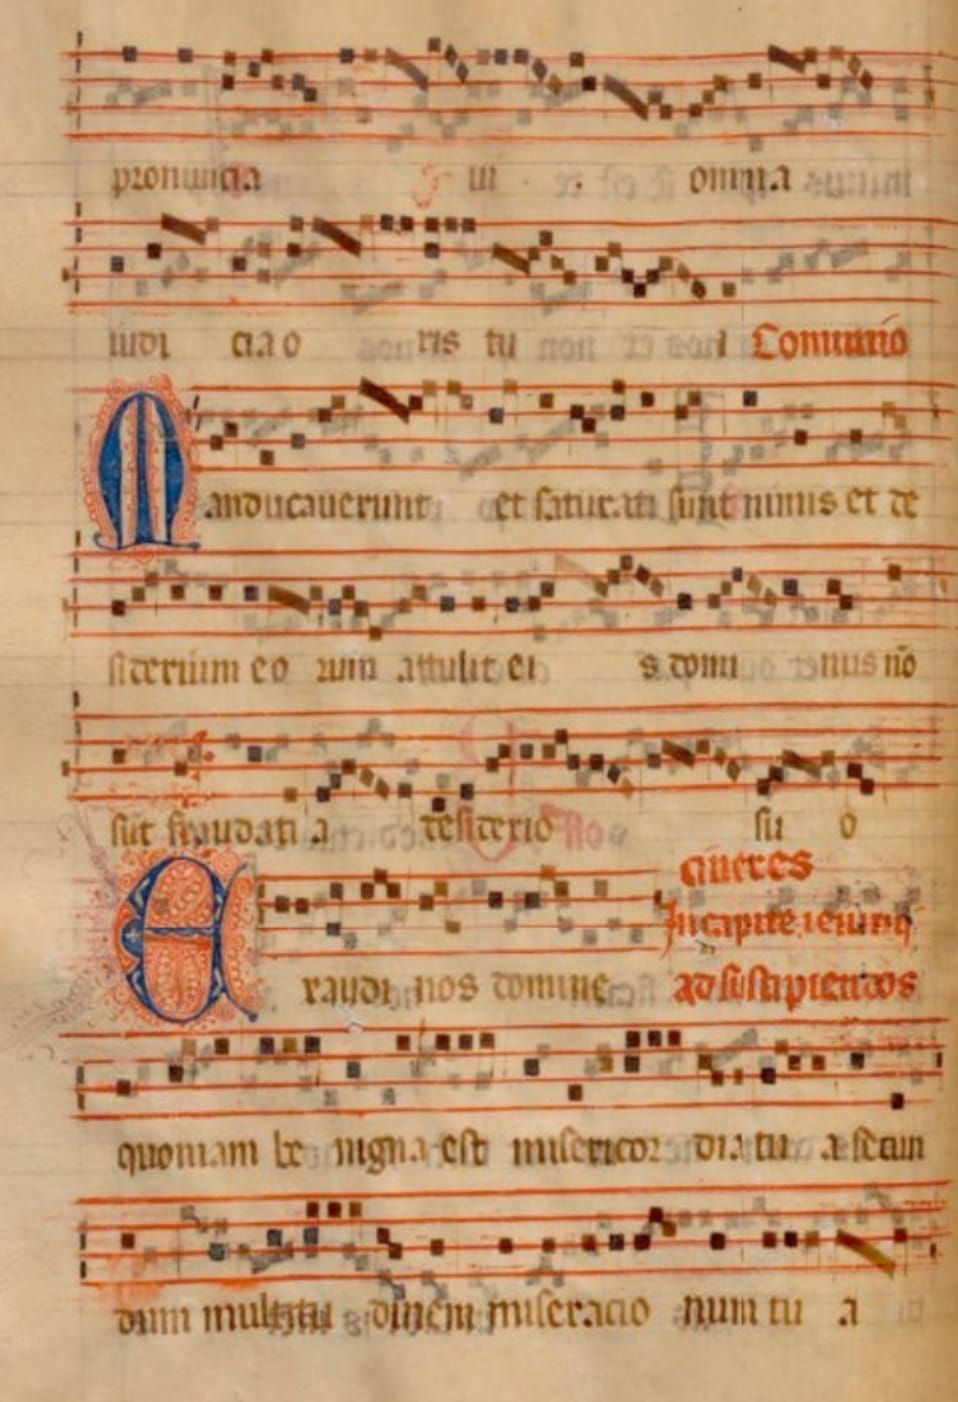 pronuncia ui omnia
iudi cia o ris tu i Comunio
Manducauerunt et saturati sunt nimis et de
siderium eo rum attulit ei s domi nus nō
sūt fraudati a desiderio su o
cineres
In capite ieiunij
Exaudi nos domine ad suscipiendos
quoniam be nigna est misericor dia tu a secun
dum multitu dinem miseracio num tu a